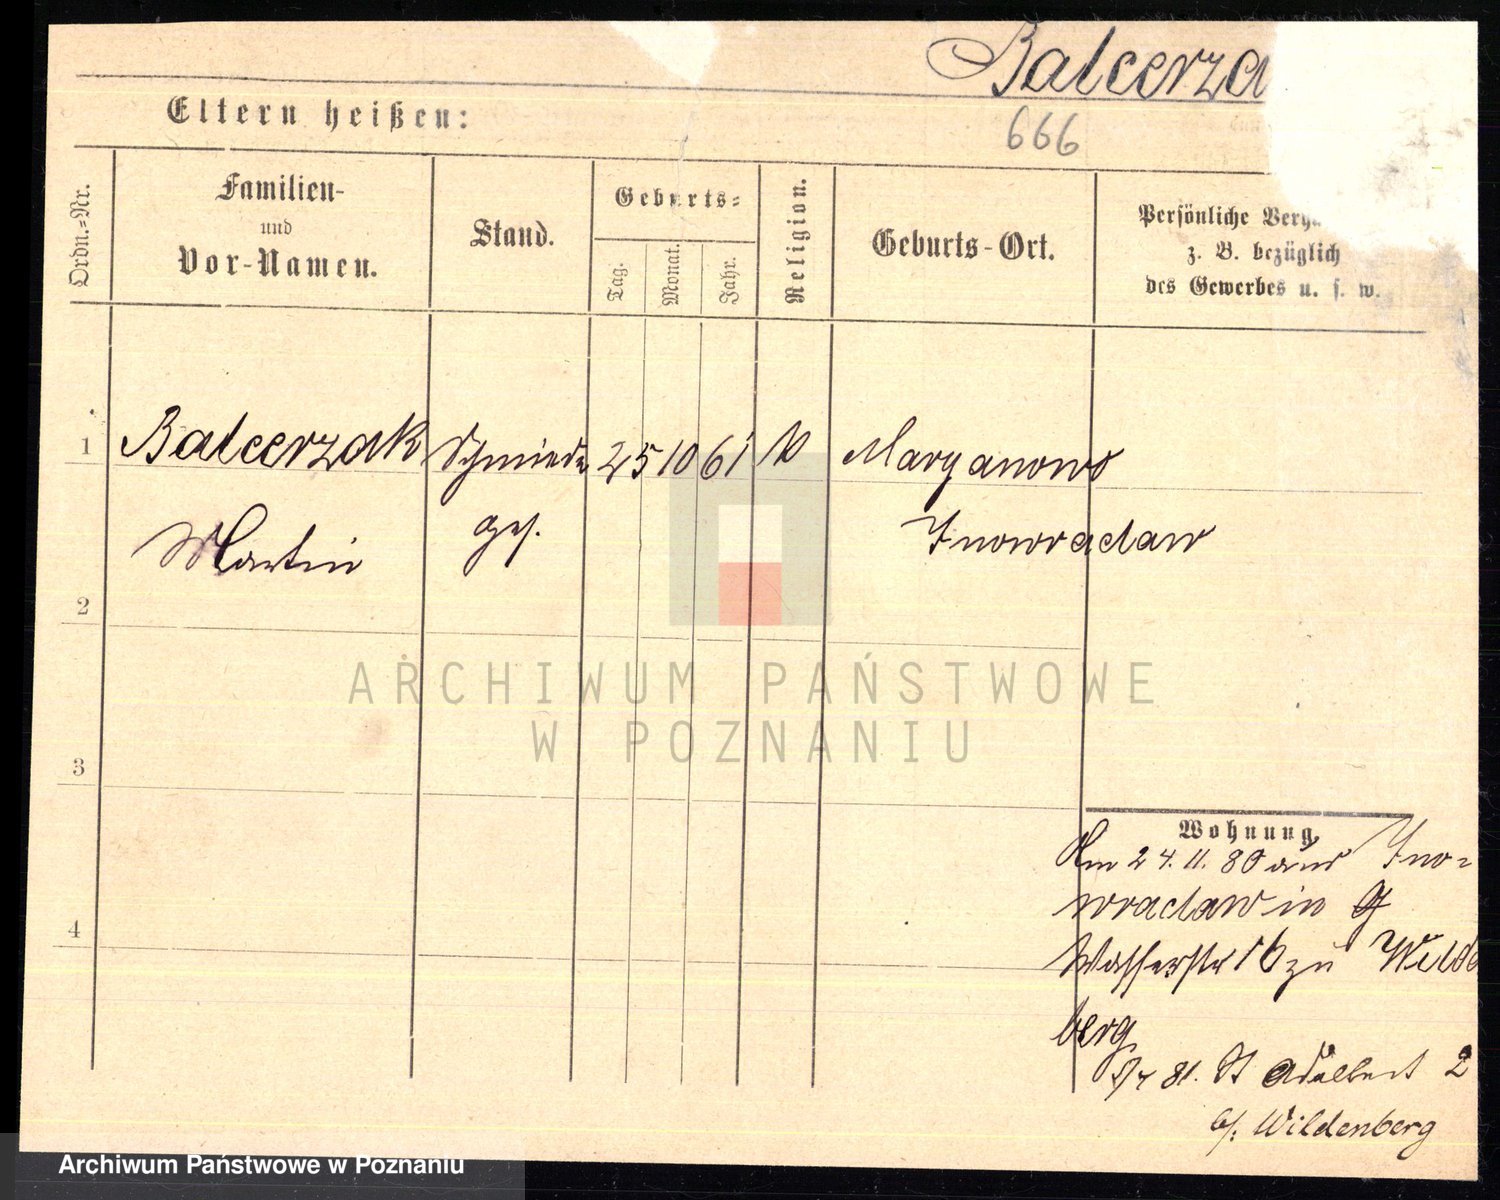 Balcerza
Eltern heißen:
666
Ordn.-Nr.
Familien-
und
Vor-Namen.
Stand.
Geburts-
Tag.
Monat.
Jahr.
Religion.
Geburts-Ort.
Persönliche
z. B. bezüglich
des Gewerbes u. s. w.
1 Balcerzak Schmiede 25 10 61 Maryanowo
Martin ges. Inowraclaw
2
ARCHIWUM PAŃSTWOWE
W POZNANIU
3
Wohnung.
Am 24. 11. 80 aus Ino-
wraclaw in
4
Wasserstr 16 zu Wild
berg
81. St Adalbert 2
b/: Wildenberg
Archiwum Państwowe w Poznaniu